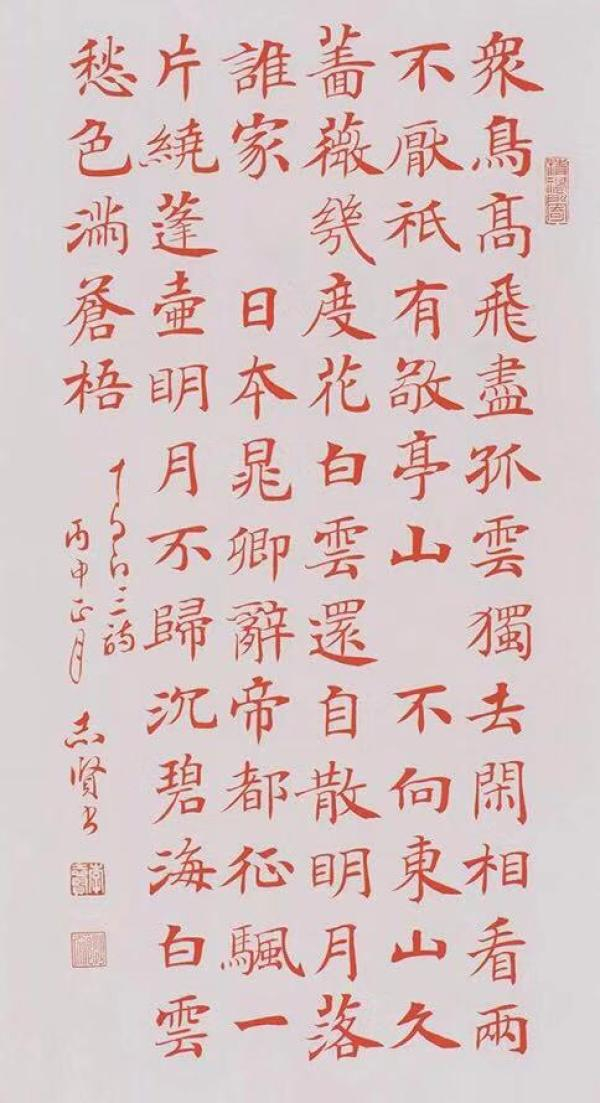 衆鳥髙飛盡孤雲獨去閑相看兩
不厭祇有敬亭山 不向東山久
薔薇幾度花白雲還自散明月落
誰家 日本晁卿辭帝都征颿一
片繞蓬壷明月不歸沉碧海白雲
愁色滿蒼梧
三詩
丙申正月 志贤书